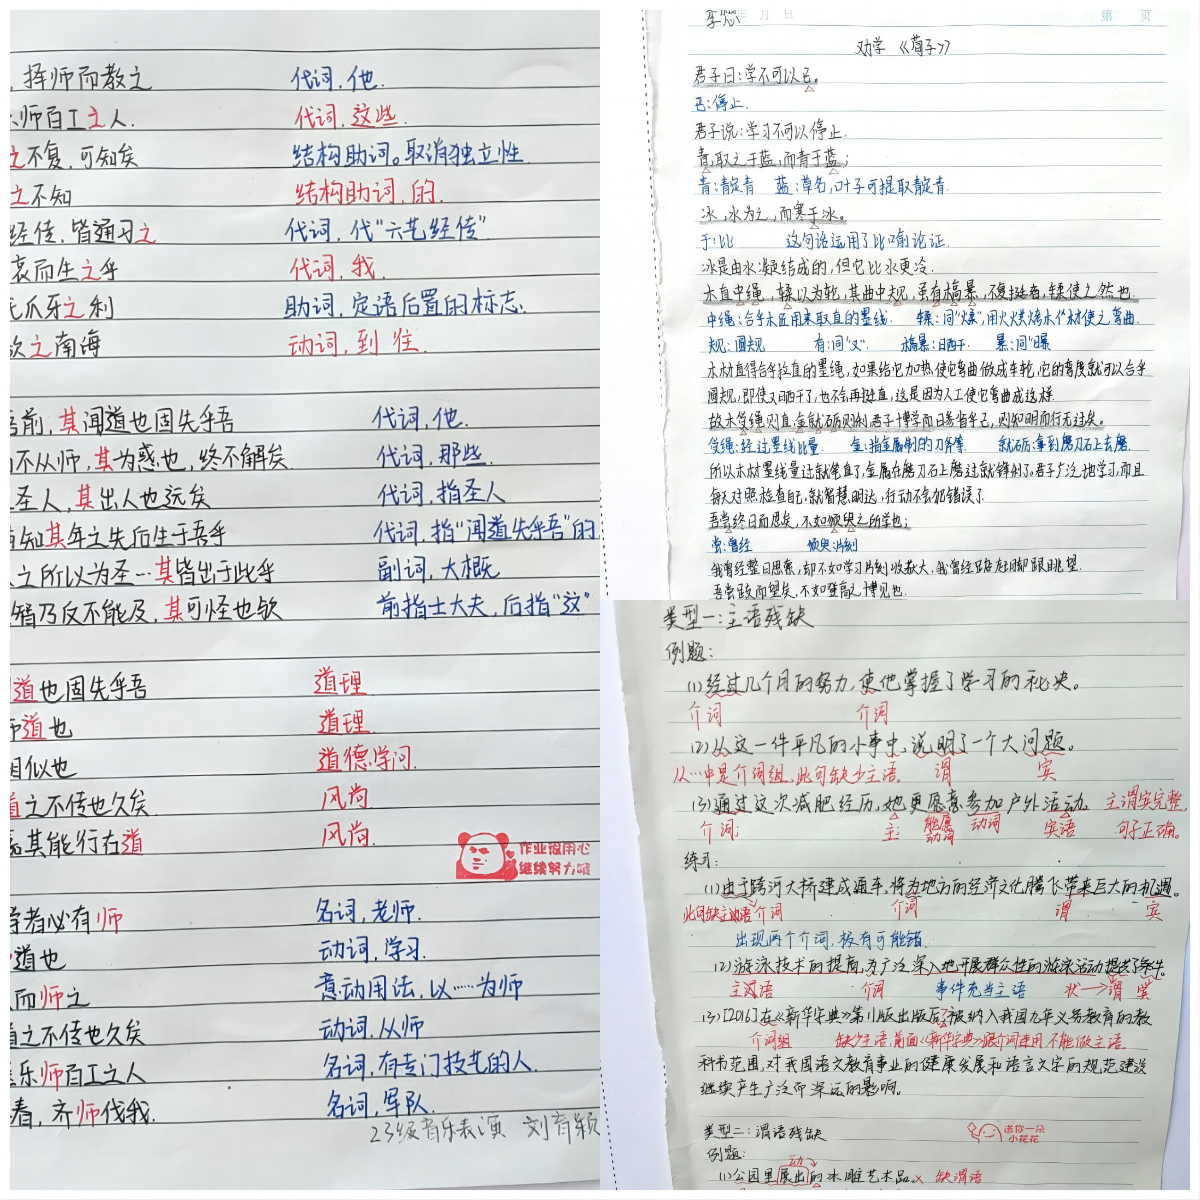 择师而教之 代词,他.
师百工之人. 代词,这些.
之不复,可知矣 结构助词。取消独立性
之不知 结构助词,的.
经传,皆通习之 代词,代“六艺经传”
哀而生之乎 代词,我.
爪牙之利 助词,定语后置的标志.
欲之南海 动词,到 往.
吾前,其闻道也固失乎吾 代词,他.
而不从师,其为惑也,终不解矣. 代词,那些.
圣人,其出人也远矣 代词,指圣人
知其年之先后生于吾乎 代词,指“闻道先乎吾”的
之所以为圣…其皆出于此乎 副词,大概
智乃反不能及,其可怪也欤 前指士大夫,后指“这”
道也固失乎吾 道理
师道也 道理.
相似也 道德学问.
道之不传也久矣. 风尚
其能行右道 风尚.
作业很用心
继续努力哦
学者必有师 名词,老师.
道也 动词,学习.
而师之 意动用法,以……为师
道之不传也久矣 动词.从师
乐师百工之人 名词,有专门技艺的人.
春,齐师伐我. 名词,军队.
23级音乐表演 刘育颖
年 月 日 第 页
劝学 《荀子》
君子曰:学不可以已。
已:停止.
君子说:学习不可以停止.
青,取之于蓝,而青于蓝;
青:靛青 蓝:草名,叶子可提取靛青.
冰,水为之,而寒于水。
于:比 这句话运用了比喻论证.
冰是由水凝结成的,但它比水更冷.
木直中绳,輮以为轮,其曲中规,虽有槁暴,不复挺者,輮使之然也.
中绳:合乎木匠用来取直的墨线. 輮:同“煣”,用火烘烤木材使之弯曲.
规:圆规 有:同“又”. 槁暴:日晒干. 暴:同“曝
木材直得合乎拉直的墨绳,如果给它加热使它弯曲做成车轮,它的弯度就可以合乎
圆规,即使又晒干了,也不会再挺直,这是因为人工使它弯曲成这样.
故木受绳则直,金就砺则利,君子博学而日参省乎己,则知明而行无过矣.
受绳:经过墨线比量. 金:指金属制的刀斧等. 就砺:拿到磨刀石上去磨.
所以木材墨线量过就笔直了,金属在磨刀石上磨过就锋利了,君子广泛地学习,而且
每天对照检查自己,就智慧明达,行动不会犯错误了.
吾尝终日而思矣,不如须臾之所学也;
尝:曾经 须臾:片刻
我曾经整日思索,却不如学习片刻收获大,我曾经踮起脚跟眺望.
吾尝跂而望矣,不如登高之博见也.
类型一:主语残缺
例题:
(1)经过几个月的努力,使他掌握了学习的秘诀。
介词 介词
(2)从这一件平凡的小事中,说明了一个大问题。
从…中是介词组,此句缺少主语. 谓 宾
(3)通过这次减肥经历,她更愿意参加户外活动. 主谓宾完整,
介词: 主: 能愿动词 动词 宾语 句子正确。
练习:
(1)由于跨河大桥建成通车,将为地方的经济文化腾飞带来巨大的机遇。
此句缺主语 介词 介词 谓 宾
出现两个介词,极有可能错.
(2)游泳技术的提高,为广泛深入地开展群众性的游泳活动提供了条件。
主语 介词 事件充当主语 状→谓 宾
(3)[2016]在《新华字典》第11版出版后,被纳入我国九年义务教育的教
介词组 缺少主语,前面《新华字典》跟介词连用,不能做主语.
科书范围,对我国语文教育事业的健康发展和语言文字的规范建设
继续产生广泛而深远的影响。
类型二:谓语残缺
送你一朵
小花花
例题: 动
(1)公园里展出的冰雕艺术品。× 缺谓语